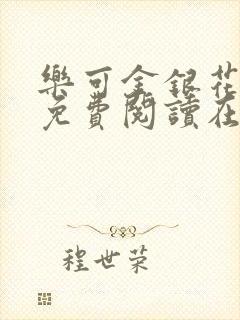 樂可金銀花
免費閱讀在
程世荣